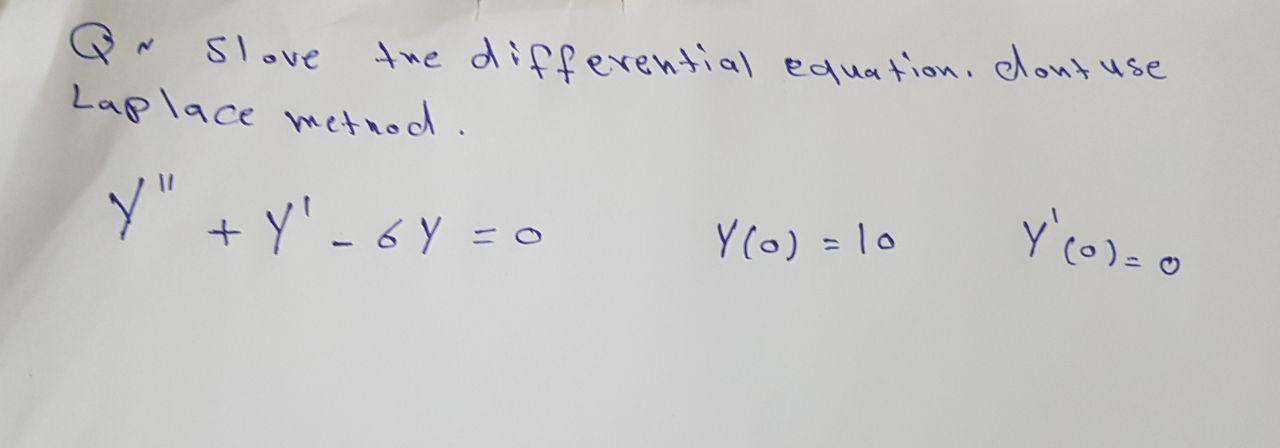 Q~ Slove the differential equation. dont use
Laplace method.
y" + y' - 6y = 0 y(0) = 10 y'(0) = 0